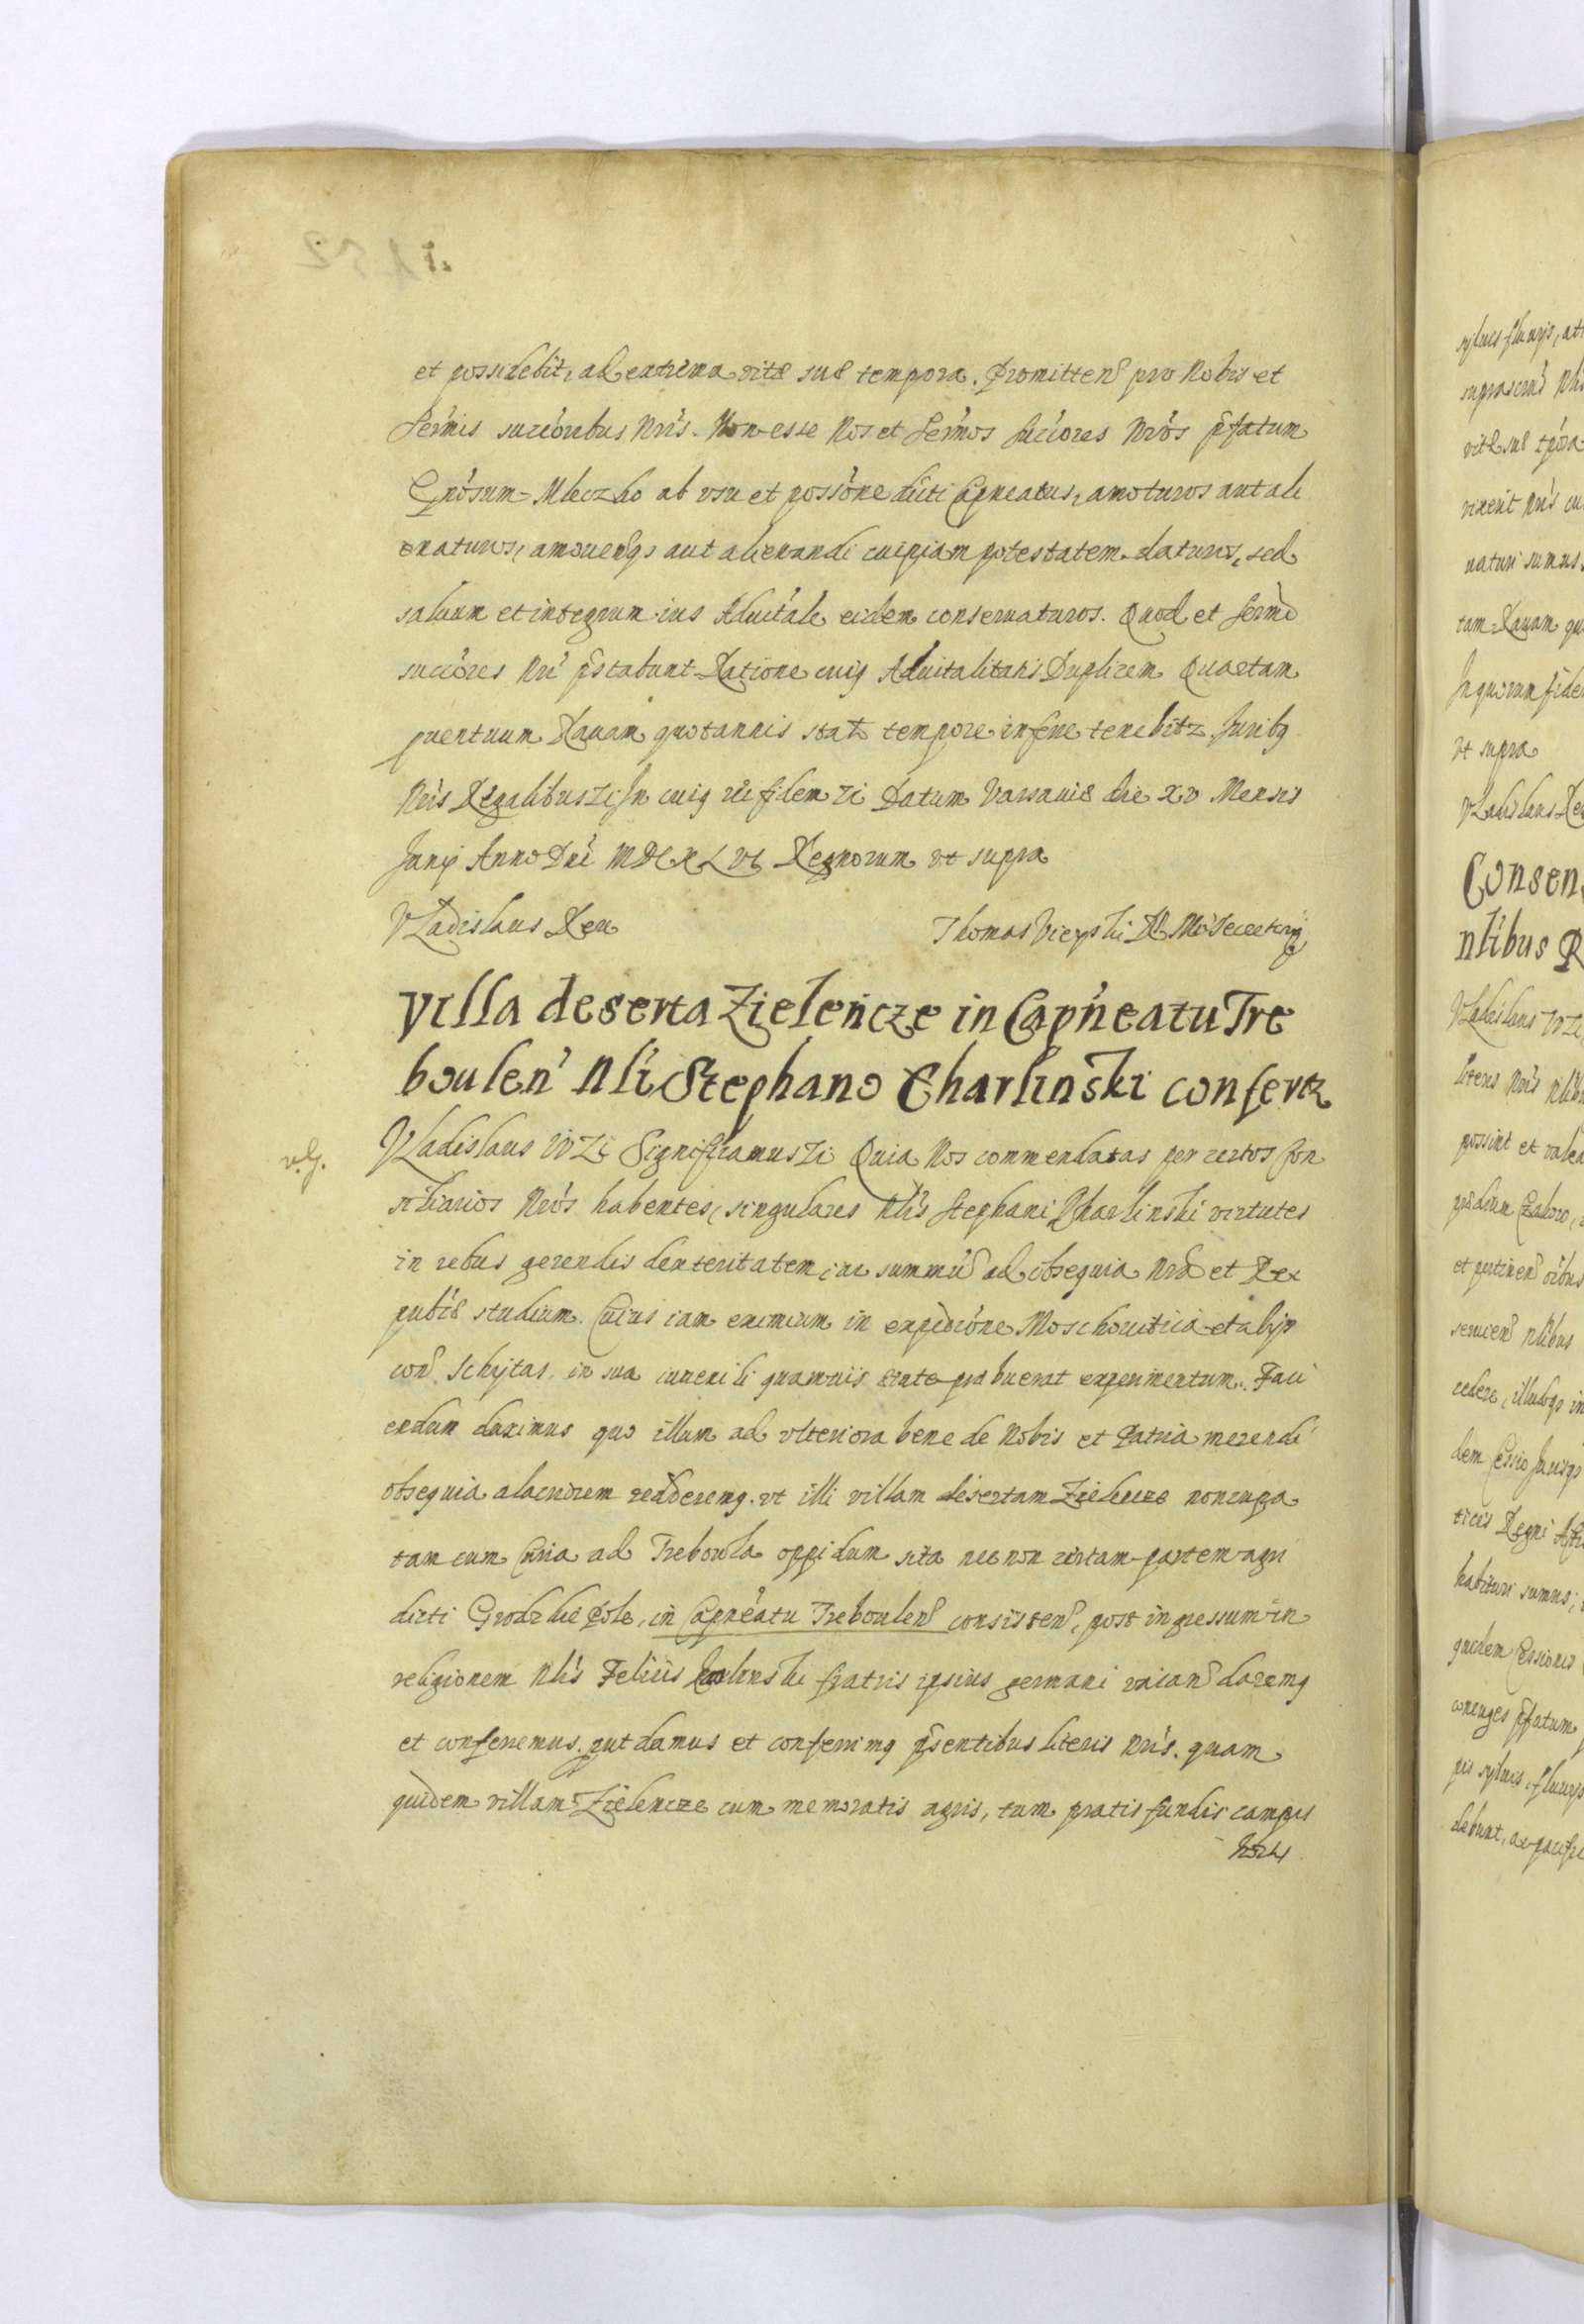 et possidebit, ad extrema vitæ suæ tempora. Promitten pro Nobis et
Serm̃is succ̃oribus Nrĩs. Non esse Nos et Serm̃os Succ̃ores Nrõs p̃fatum
Gnõsum Mleczko ab usu et poss̃one dicti Capneatus, amoturos aut ali
enaturos, amouendiqs aut alienandi cuipiam potestatem daturos, sed
saluum et integrum ius Aduitãle eidem conservaturos. Quod et Serm̃i
succ̃ores Nrĩ p̃stabunt Ratione cuiq Aduitalitatis Duplicem Quartam
puentuum Rauam quotannis stato tempore inferre tenebitz. Juribq
Nrĩs Regalibus zc In cuiq rei fidem zc Datum Varsauiæ die XV Mensis
Junij Anno Dnĩ MDCXLVI Regnorum vt supra
VLadislaus Rex
Thomas Vieyski R. M. Secretariq
Villa deserta Zielencze in Capñeatu Tre
boulen̄ Nlĩ Stephano Charlinski confertz
v.g.
VLadislaus IV zc Significamus zc Quia Nos commendatas per certos Con
siliarios Nrõs habentes, singulares Nlĩs Stephani Charlinski virtutes
in rebus gerendis dexteritatem, ac summũ ad obsequia Nrã et Rei
pubcæ studium. Cuius iam eximium in expedicõne Moschouitica et alijs
con Schytas in sua iuvenili quamuis ætate præbuerat experimentum. Faci
endum duximus quo illum ad vlteriora bene de Nobis et Patria merendi
obsequia alacriorem redderemq. vt illi villam desertam Zielencze noncupa
tam cum Curia ad Treboula oppidum sita nec non certam partem agri
dicti Grodzkie Pole, in Capneatu Treboulen consisten, post ingressum in
religionem Nlĩs Felicis fratris ipsius germani vacan daremq
et conferremus. put damus et conferimq p̃sentibus literis Nrĩs. quam
quidem villam Zielencze cum memoratis agris, tum pratis fundis campis
hortis
sylucs fluuijs, at
vitæ suæ tpõra
vixerit Nrĩs cu
naturi sumus
tam Rauam qu
In quorum fide
vt supra
VLadislaus Re
Consen
nlibus R
VLadislaus IV zc
literis Nrĩs Nlĩb
possint et valea
seruien Nlĩbus
cedere, illudqs in
dem Cessio
ticis Regni
habituri sumus,
quidem Cessionis
coniuges p̃fatum
pis sylucis, fluuijs
debunt, ac